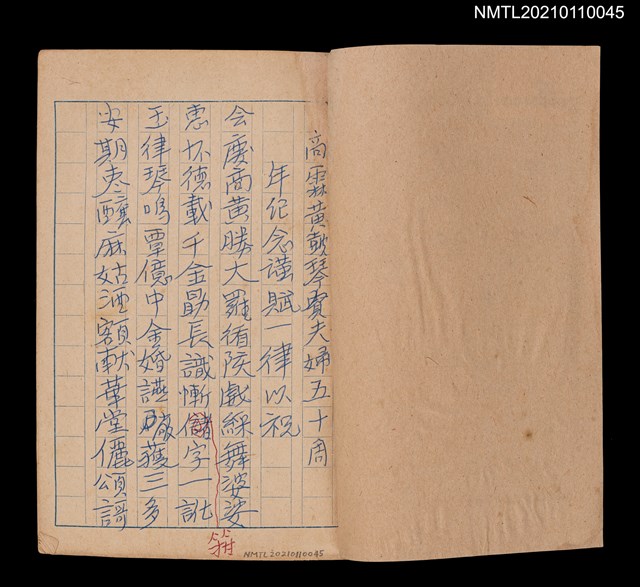 NMTL20210110045
商霖黃鼓琴賓夫婦五十周
年紀念謹賦一律以祝
会慶商黃勝大羅循陔戲綵舞婆娑
惠怀德載千金勛長識慚儲字一訛
玉律琴鳴覃億中金婚讌啟獲三多
安期棗釀麻姑酒額献華堂儷頌謌
NMTL20210110045